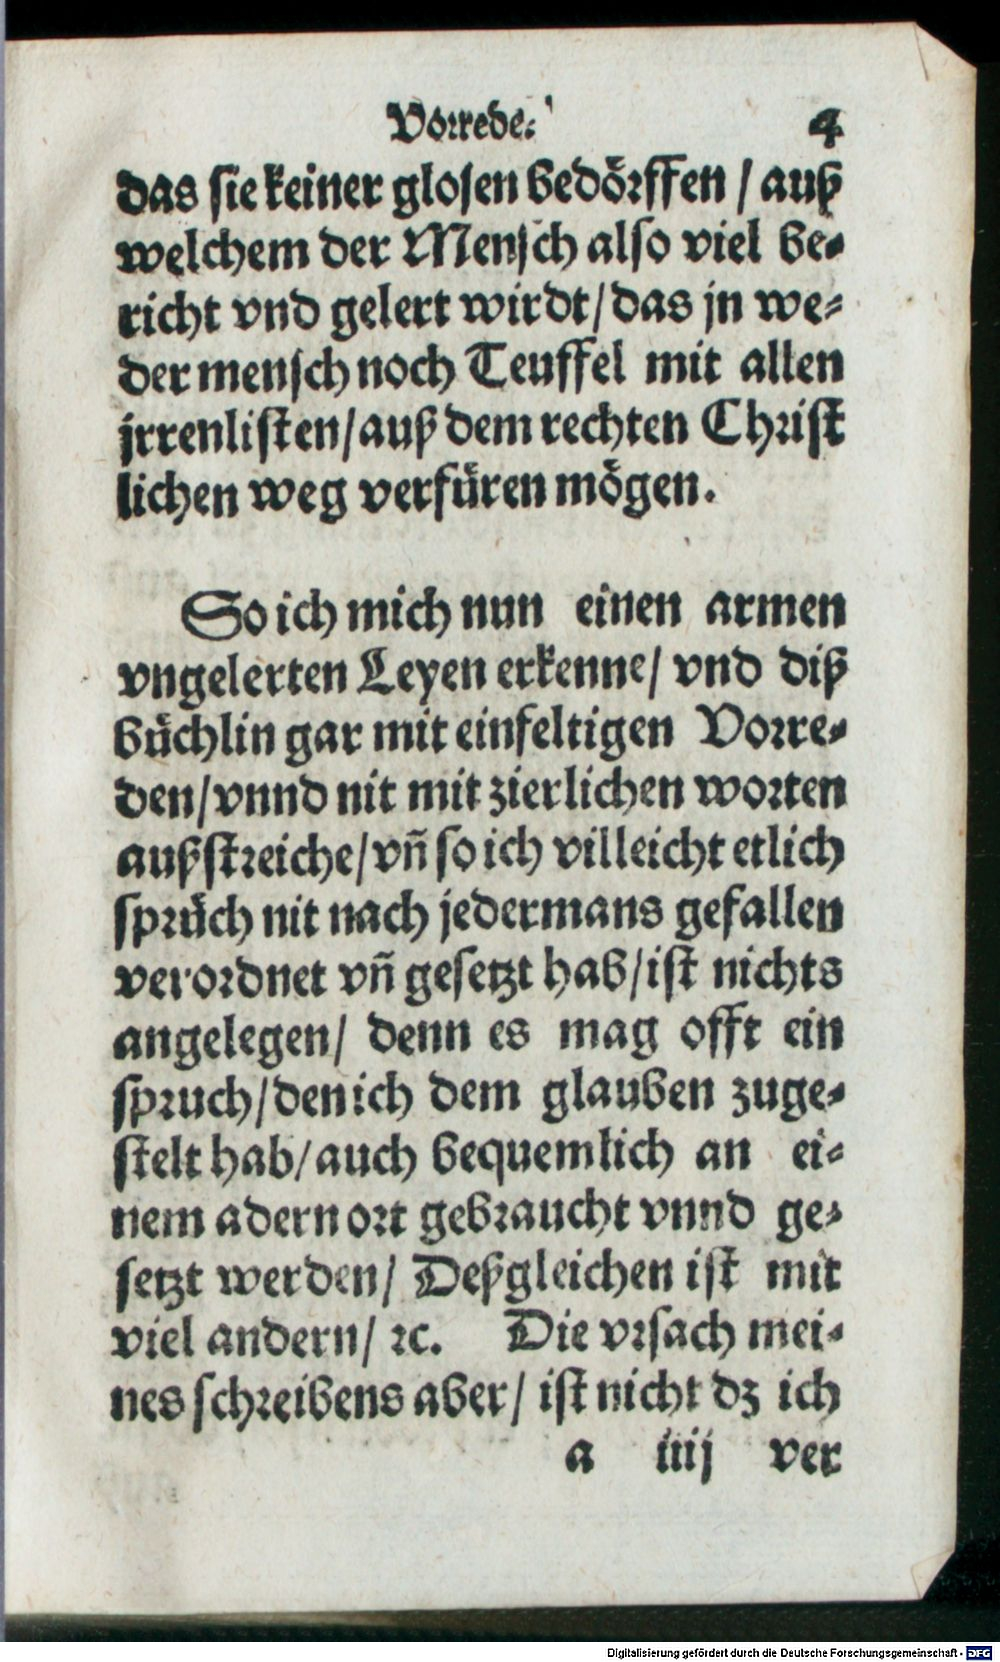 Vorrede.
4
das sie keiner glosen bedörffen / auß
welchem der Mensch also viel be-
richt vnd gelert wirdt / das jn we-
der mensch noch Teuffel mit allen
jrrenlisten / auß dem rechten Christ
lichen weg verfüren mögen.
So ich mich nun einen armen
vngelerten Leyen erkenne / vnd diß
büchlin gar mit einfeltigen Vorre-
den / vnnd nit mit zierlichen worten
außstreiche / vñ so ich villeicht etlich
sprüch nit nach jedermans gefallen
verordnet vñ gesetzt hab / ist nichts
angelegen / denn es mag offt ein
spruch / den ich dem glauben zuge-
stelt hab / auch bequemlich an ei-
nem adern ort gebraucht vnnd ge-
setzt werden / Deßgleichen ist mit
viel andern / ꝛc. Die vrsach mei-
nes schreibens aber / ist nicht dz ich
a iiij ver
Digitalisierung gefördert durch die Deutsche Forschungsgemeinschaft - DFG